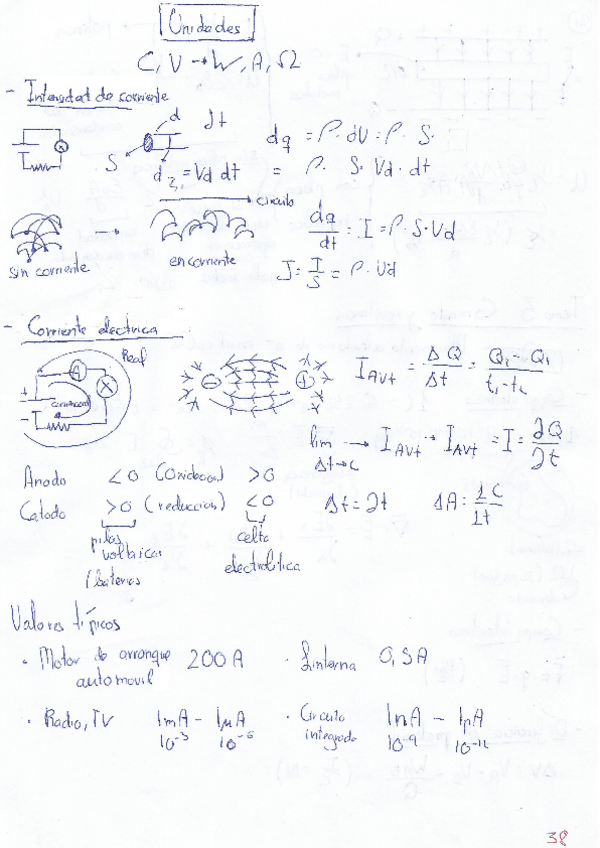 Unidades
C, V → W, A, Ω
- Intensidad de corriente
d dt
S d = Vd dt
dq = ρ · dV = ρ · S ·
= ρ · S · Vd · dt
circuito
sin corriente → en corriente
dq/dt = I = ρ · S · Vd
J = I/S = ρ · Vd
- Corriente electrica
Real
A
convencional
+ -
I_AVt = ΔQ/Δt = Q₁ - Q₁/t₁ - t₂
lim → I_AVt · I_AVt = I = ∂Q/∂t
Anodo <0 (Oxidacion) >0
Catodo >0 (reduccion) <0
Δt = ∂t 1A = 1C/1t
pilas voltaicas (baterias
celda electrolitica
Valores típicos
· Motor de arranque automovil 200 A
· Linterna 0,5A
· Radio, TV 1mA - 1μA
10⁻³ 10⁻⁶
· Circuito integrado 1nA - 1pA
10⁻⁹ 10⁻¹²
38